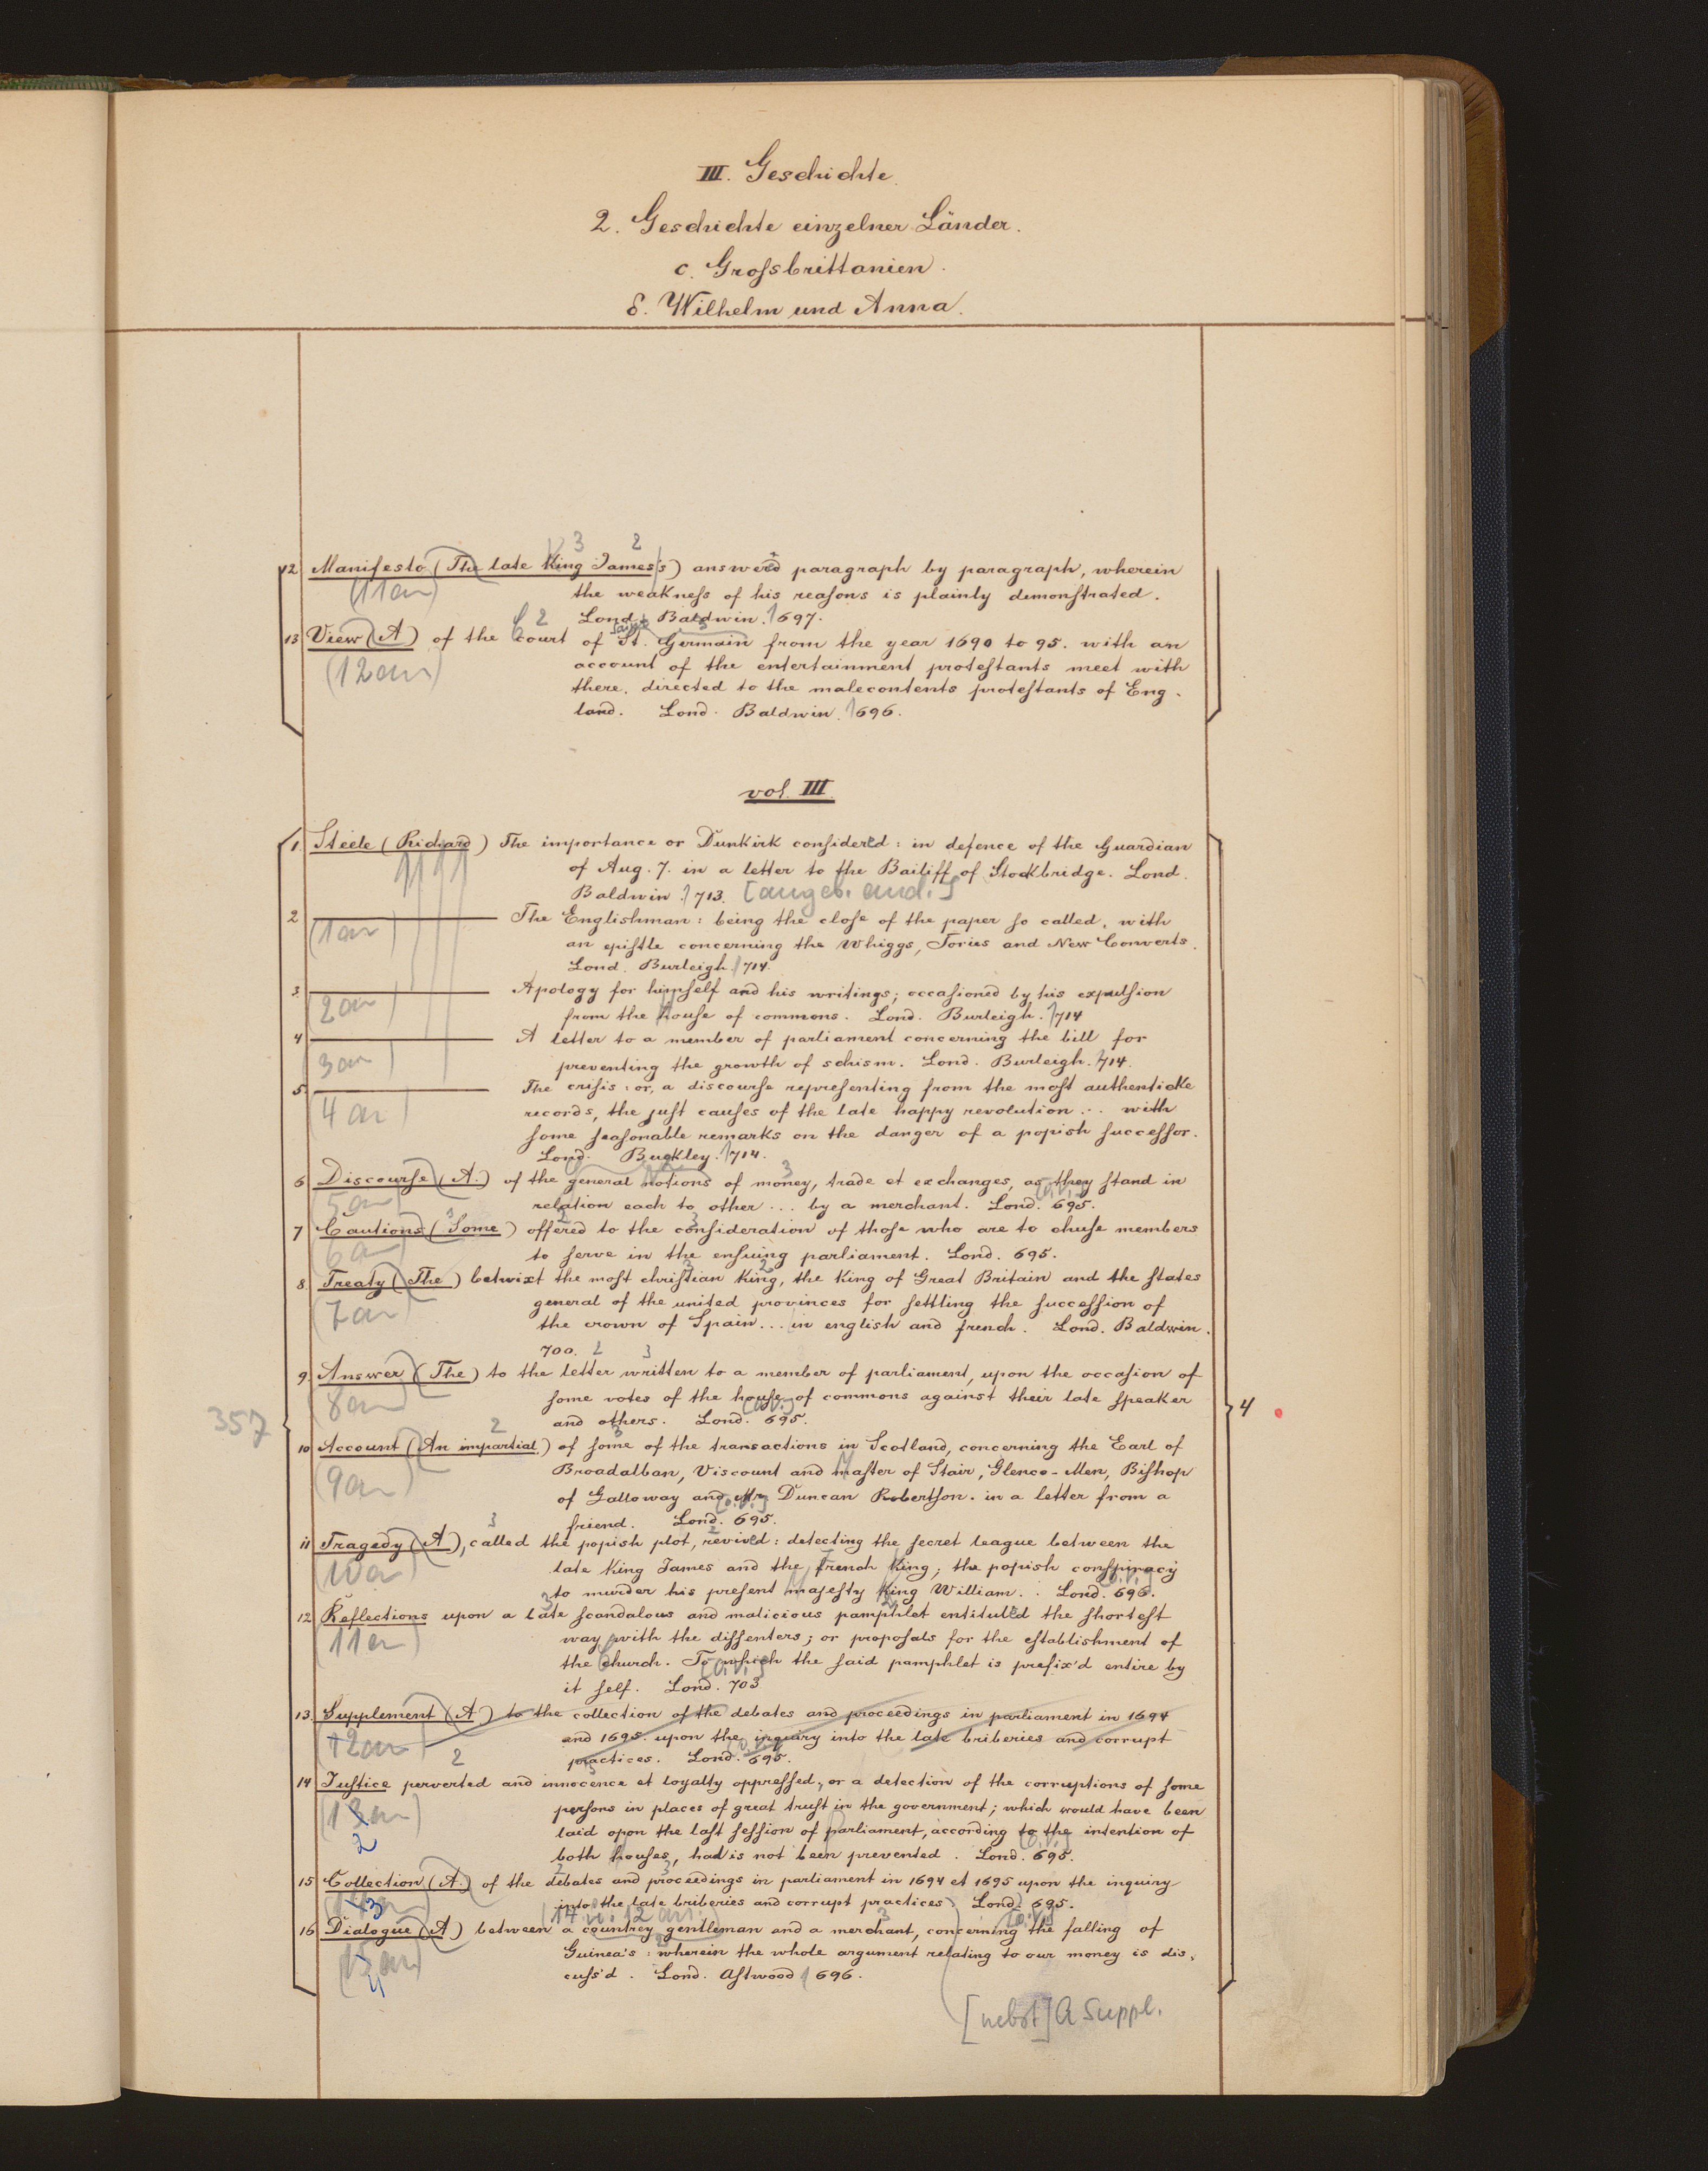 III. Geschichte.
2. Geschichte einzelner Länder.
c. Großbrittanien.
δ. Wilhelm und Anna.
3 2
12 Manifesto (The late King James's) answerd paragraph by paragraph, wherein
(11an) the weakneſs of his reaſons is plainly demonſtrated.
Lond. Baldwin. 1697.
13 View (A) of the court of St. Germain from the year 1690 to 95. with an
(12an) account of the entertainment proteſtants meet with
there. directed to the malecontents proteſtants of Eng-
land. Lond. Baldwin. 1696.
vol. III
1. Steele (Richard) The importance or Dunkirk considerd: in defence of the Guardian
of Aug. 7. in a letter to the Bailiff of Stockbridge. Lond.
Baldwin. 1713. [angeb. and.]
2 ——— The Englishman: being the cloſe of the paper ſo called, with
(1an) an epiſtle concerning the Whiggs, Tories and New Converts.
Lond. Burleigh. 1714.
3. ——— Apology for himſelf and his writings; occaſioned by his expulsion
(2an) from the houſe of commons. Lond. Burleigh. 1714
4 ——— A letter to a member of parliament concerning the bill for
(3an) preventing the growth of schism. Lond. Burleigh. 1714.
5 ——— The criſis: or, a discourſe repreſenting from the moſt authenticke
(4an) records, the juſt cauſes of the late happy revolution ... with
ſome ſeaſonable remarks on the danger of a popish ſucceſſor.
Lond. Buckley. 1714.
6 Discourſe (A.) of the general notions of money, trade et exchanges, as they ſtand in
(5an) relation each to other ... by a merchant. Lond. 695.
7 Cautions (Some) offered to the conſideration of thoſe who are to chuſe members
(6an) to ſerve in the enſuing parliament. Lond. 695.
8. Treaty (The) betwixt the moſt chriſtian King, the King of Great Britain and the ſtates
(7an) general of the united provinces for ſettling the ſucceſſion of
the crown of Spain ... in english and french. Lond. Baldwin.
700.
9. Answer (The) to the letter written to a member of parliament, upon the occaſion of
(8an) ſome votes of the houſe of commons against their late ſpeaker
and others. Lond. 695.
357
4
10 Account (An impartial) of ſome of the transactions in Scotland, concerning the Earl of
(9an) Broadalban, Viscount and maſter of Stair, Glenco-Men, Biſhop
of Galloway and Mr. Duncan Robertſon. in a letter from a
friend. Lond. 695.
11 Tragedy (A), called the popish plot, revivd: detecting the ſecret league between the
(10a) late King James and the french King; the popish conſpiracy
to murder his preſent majeſty King William. Lond. 696.
12 Reflections upon a late ſcandalous and malicious pamphlet entituld the ſhorteſt
(11an) way with the diſſenters; or propoſals for the eſtablishment of
the church. To which the ſaid pamphlet is prefix'd entire by
it ſelf. Lond. 703
13. Supplement (A) to the collection of the debates and proceedings in parliament in 1694
(12an) and 1695. upon the inquiry into the late briberies and corrupt
practices. Lond. 695.
14 Juſtice perverted and innocence et loyalty oppreſſed, or a detection of the corruptions of ſome
(13an) perſons in places of great truſt in the government; which would have been
2 laid opon the laſt ſeſſion of parliament, according to the intention of
both houſes, had is not been prevented. Lond. 695.
15 Collection (A.) of the debates and proceedings in parliament in 1694 et 1695 upon the inquiry
into the late briberies and corrupt practices. Lond. 695.
16 Dialogue (A) between a countrey gentleman and a merchant, concerning the falling of
(15an) Guinea's: wherein the whole argument relating to our money is dis-
4 cuſs'd. Lond. Aſtwood 1696.
[nebst] A Suppl.